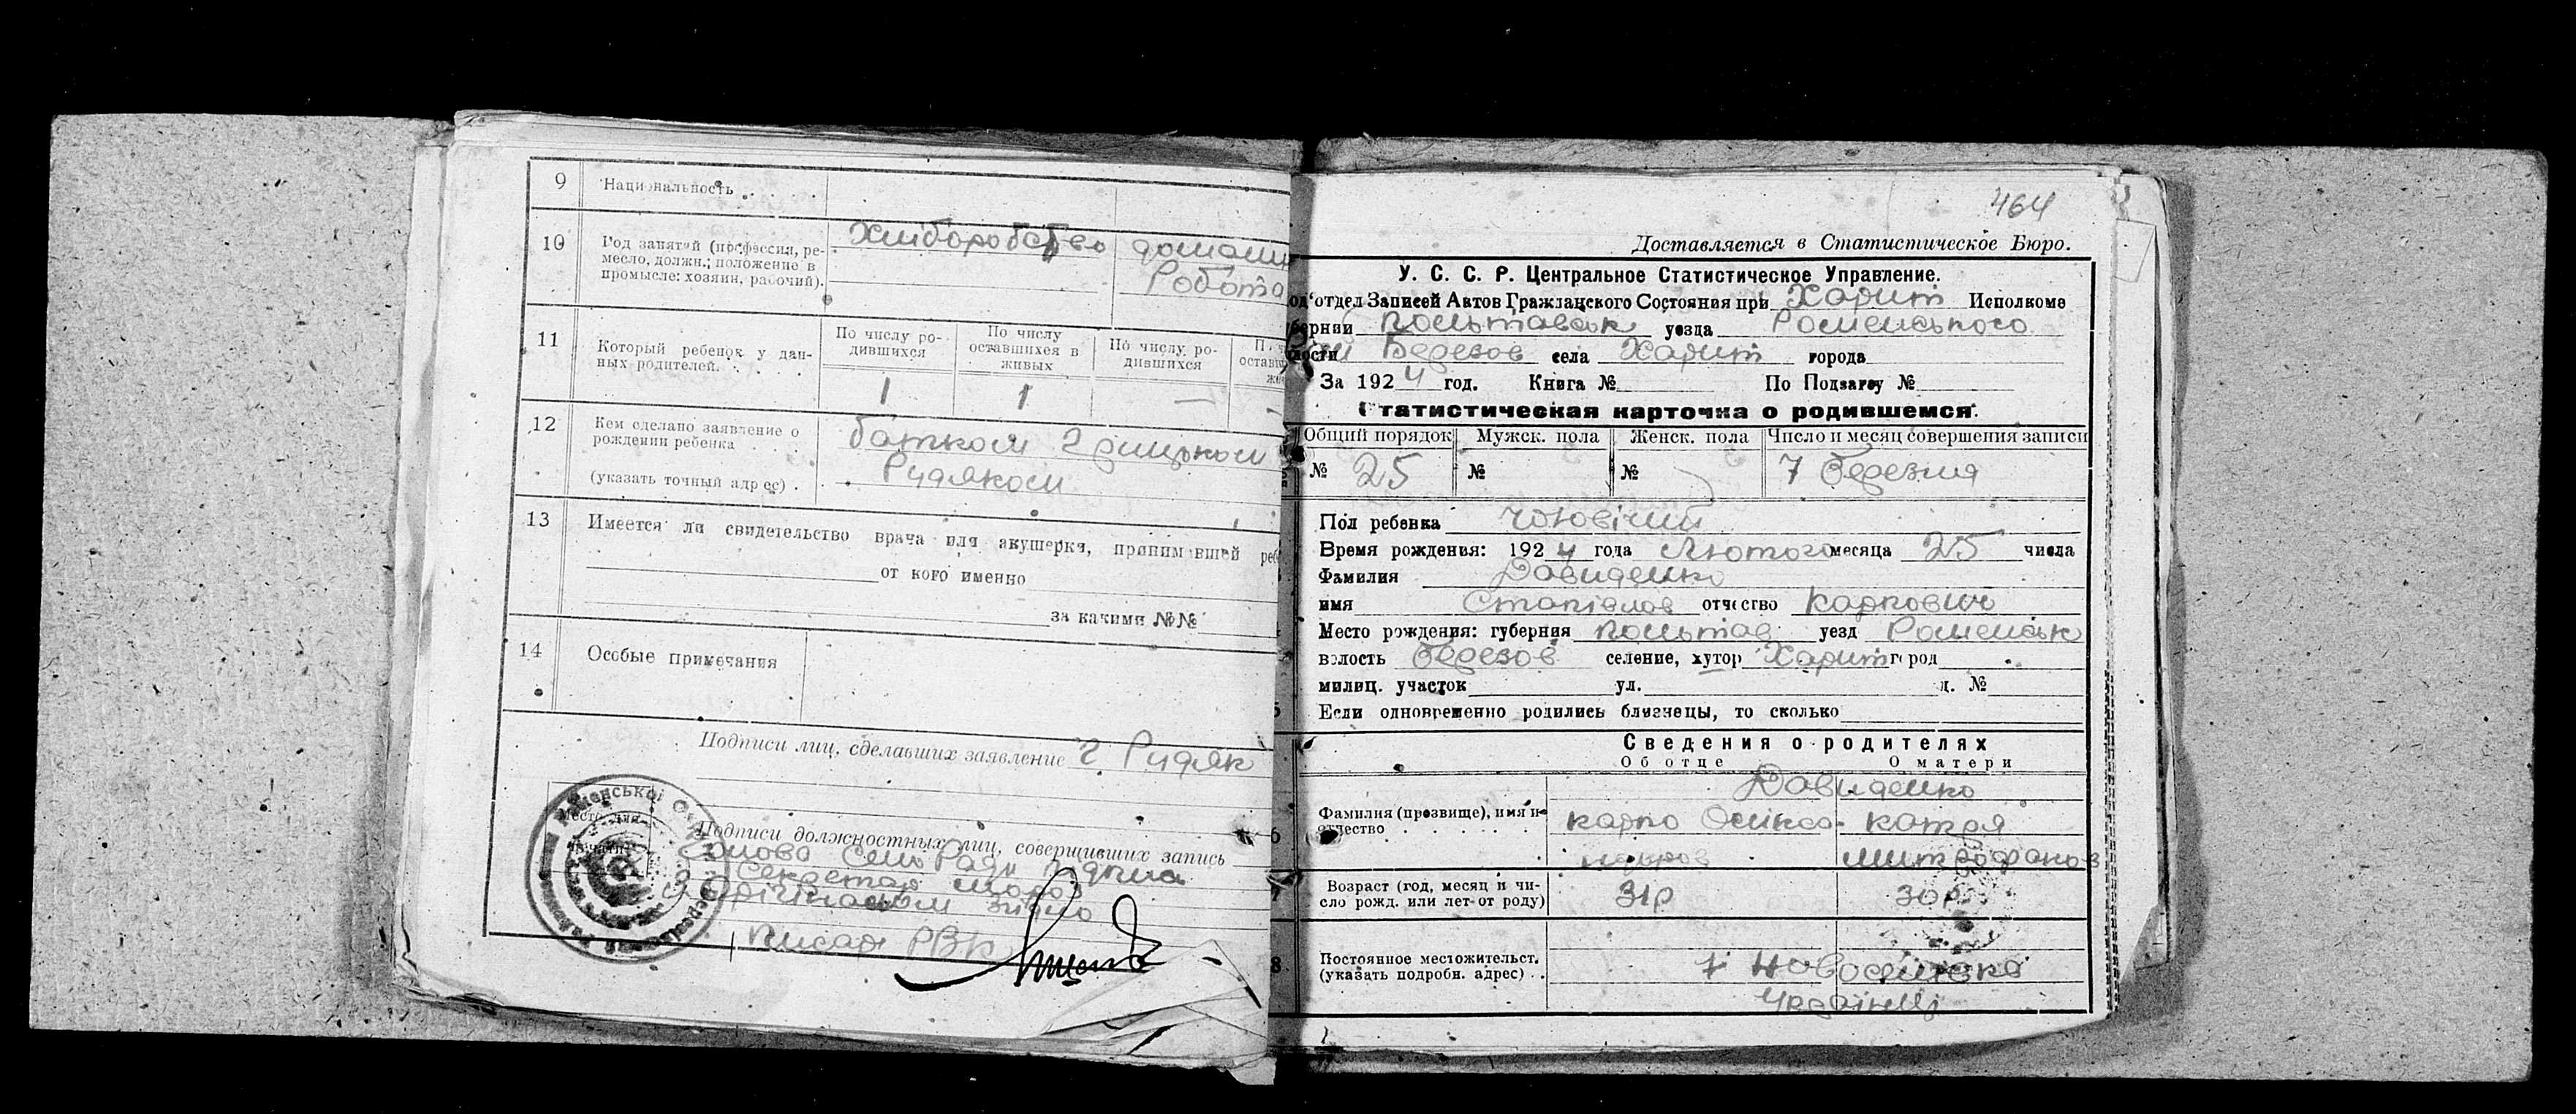 9 Национальность
10 Род занятий (профессия, ре-
месло, должн.; положение в
промысле: хозяин, рабочий).
Хліборобство домашн
Робота
11 Который ребенок у дан-
ных родителей.
По числу ро-
дившихся
По числу
оставшихся в
живых
По числу ро-
дившихся
1 1 — -
12 Кем сделано заявление о
рождении ребенка
(указать точный адрес) .
батьком Грицьком
Рудяком
13 Имеется ли свидетельство врача или акушерки, принимавшей реб
от кого именно
за какими №№
14 Особые примечания
Подписи лиц, сделавших заявление Г Рудяк
Место для
печати
Подписи должностных лиц, совершивших запись
Голова Сель Ради підпис
Секретар
З оригіналом згідно
Писар РВК
464
Доставляется в Статистическое Бюро.
У. С. С. Р. Центральное Статистическое Управление.
од'отдел Записей Актов Гражданского Состояния при Харит Исполкоме
бернии Польтавськ уезда Роменського
лости Березов села Харит города
За 1924 год. Книга № По Подзагсу №
Статистическая карточка о родившемся.
Общий порядок Мужск. пола Женск. пола Число и месяц совершения записи
№ 25 № № 7 березня
Пол ребенка чоловічий
Время рождения: 1924 года Лютого месяца 25 числа
Фамилия Давиденко
имя отчество Карпович
Место рождения: губерния Польтав уезд Роменськ
волость Березов селение, хутор Харит город
милиц. участок ул. д. №
5 Если одновременно родились близнецы, то сколько
Сведения о родителях
Об отце О матери
Давиденко
6 Фамилия (прозвище), имя и
отчество
Карпо Катря
Митрофанов
7 Возраст (год, месяц и чи-
сло рожд. или лет от роду)
31р 30р
8 Постоянное местожительст.
(указать подробн. адрес) . .
х Новоселовка
Українці